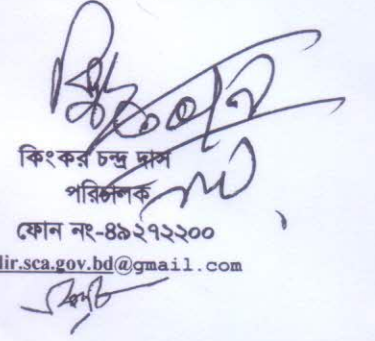 কিংকর চন্দ্র দাস
পরিচালক
ফোন নং-৪৯২৭২২০০
dir.sca.gov.bd@gmail.com